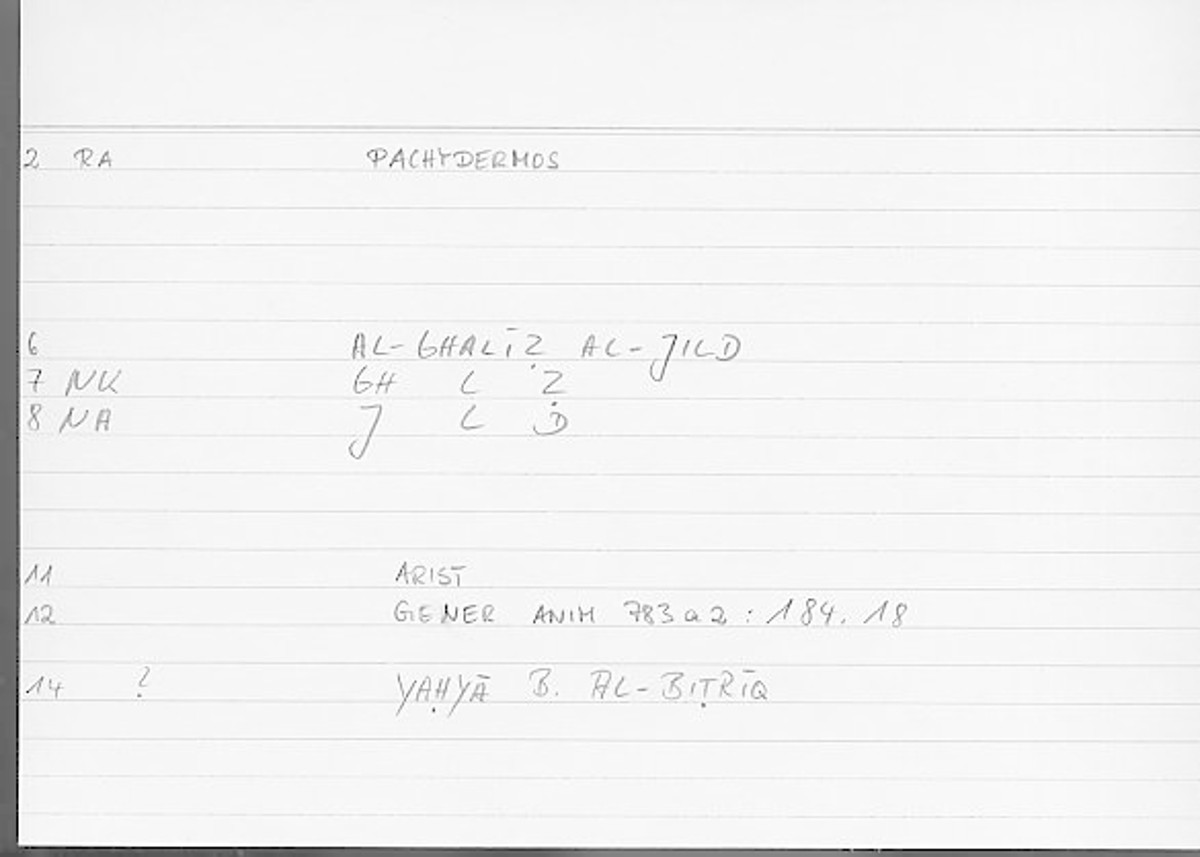 2 RA PACHYDERMOS
6 AL-GHALĪẒ AL-JILD
7 NK GH L Ẓ
8 NA J L D
11 ARIST
12 GENER ANIM 783a2: 184.18
14 ? YAḤYĀ B. AL-BIṬRĪQ